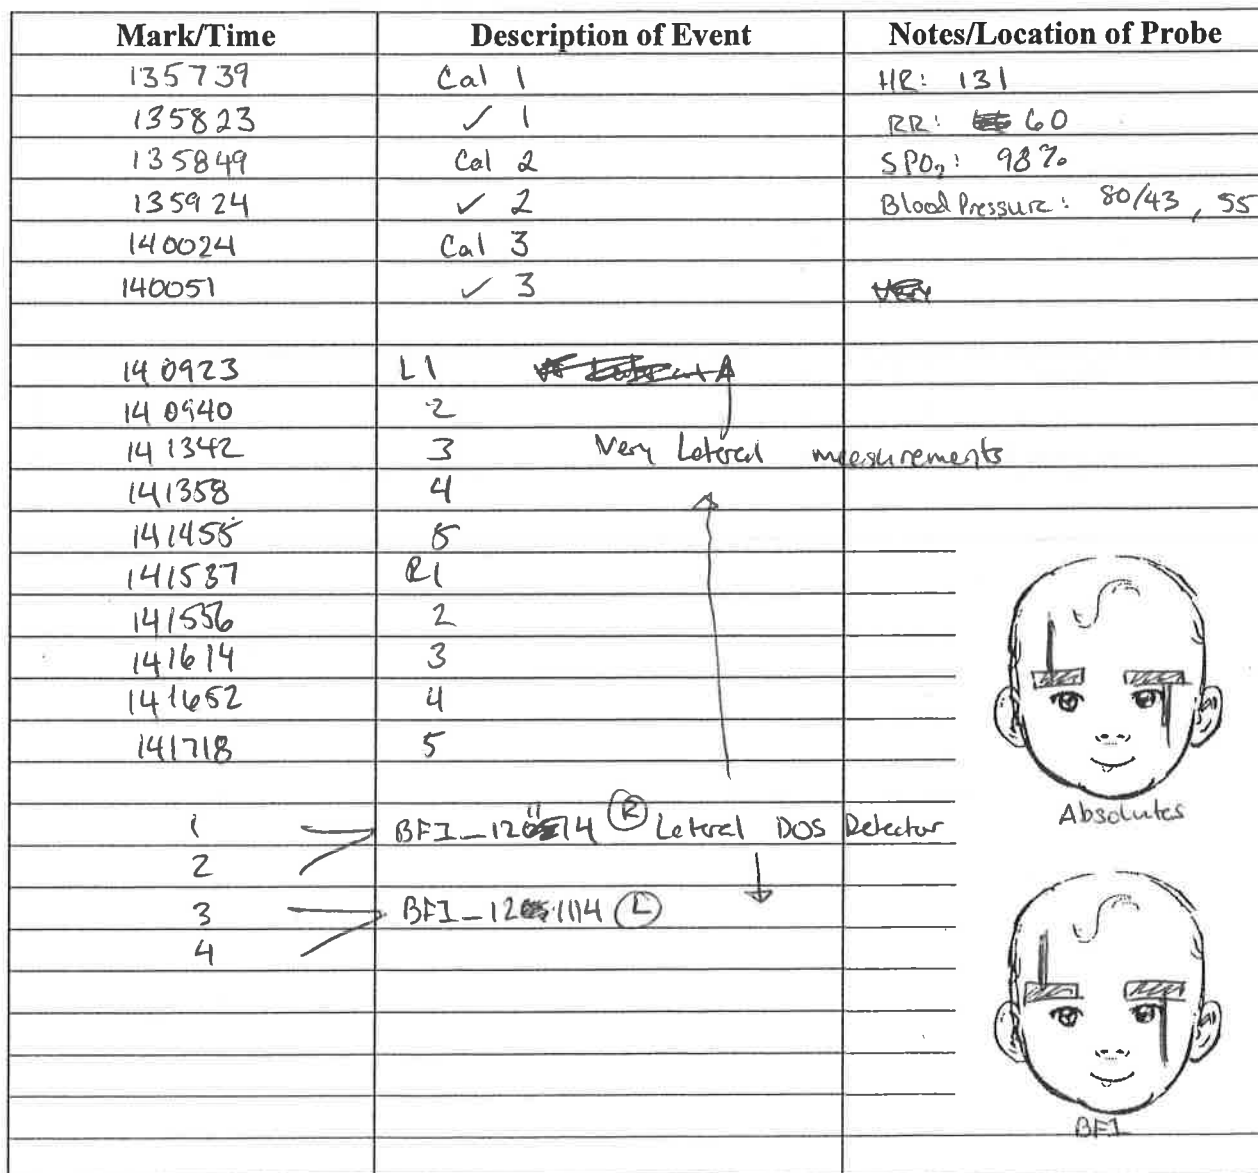 Mark/Time Description of Event Notes/Location of Probe
135739 Cal 1 HR: 131
135823 ✓ 1 RR: 60
135849 Cal 2 SPO2: 98%
135924 ✓ 2 Blood Pressure: 80/43, 55
140024 Cal 3
140051 ✓ 3 Very
140923 L1
140940 2
141342 3 Very Lateral measurements
141358 4
141455 5
141537 R1
141556 2
141614 3
141652 4
141718 5
Absolutes
1 BFI_121114 R Lateral DOS Detector
2
3 BFI_121114 L
4
BFI